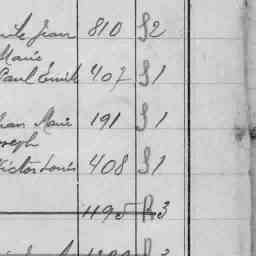 Jean 810 S2
Marie
Paul Emile 407 S1
Jean Marie 191 S1
Joseph
Victor Louis 408 S1
1195 R3